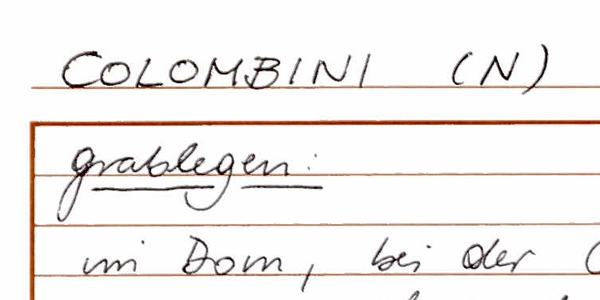 COLOMBINI (N)
Grablegen:
im Dom, bei der